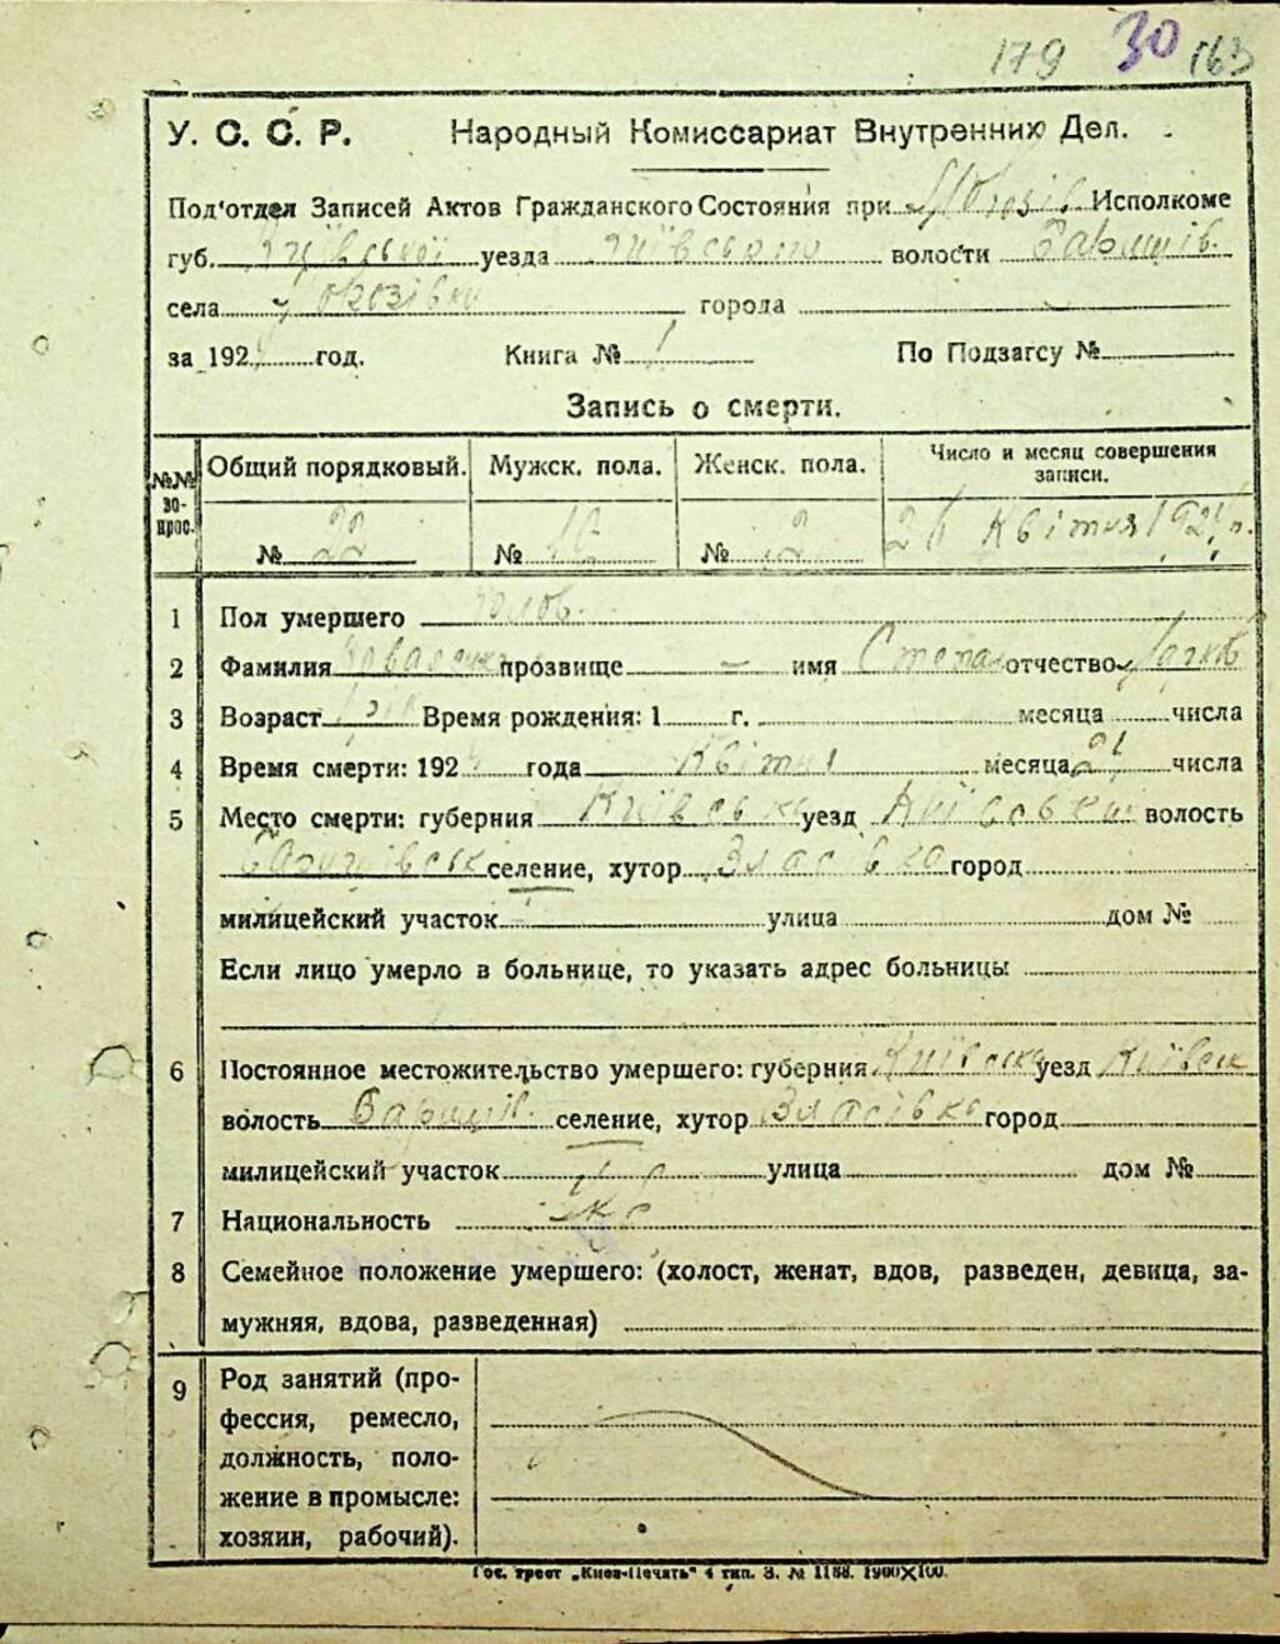 179 30 163
У. С. С. Р. Народный Комиссариат Внутренних Дел.
Под'отдел Записей Актов Гражданского Состояния при Исполкоме
губ. Київської уезда Київського волости Баришів.
села Морозівки города
за 192 год. Книга № 1 По Подзагсу №
Запись о смерти.
№№ вопрос. Общий порядковый. Мужск. пола. Женск. пола. Число и месяц совершения записи.
№ 22 № № Квітня 192 р.
1 Пол умершего чолов.
2 Фамилия прозвище – имя Степан отчество
3 Возраст Время рождения: 1 г. месяца числа
4 Время смерти: 192 года Квітня месяца 21 числа
5 Место смерти: губерния Київська уезд Київський волость
Баришівськ селение, хутор Власівка город
милицейский участок улица дом №
Если лицо умерло в больнице, то указать адрес больницы
6 Постоянное местожительство умершего: губерния Київська уезд Київськ
волость Бариш. селение, хутор Власівка город
милицейский участок улица дом №
7 Национальность Укр
8 Семейное положение умершего: (холост, женат, вдов, разведен, девица, за-
мужняя, вдова, разведенная)
9 Род занятий (про-
фессия, ремесло,
должность, поло-
жение в промысле:
хозяин, рабочий).
Гос. трест „Киев-Печать" 4 тип. З. № 1188. 1900×100.